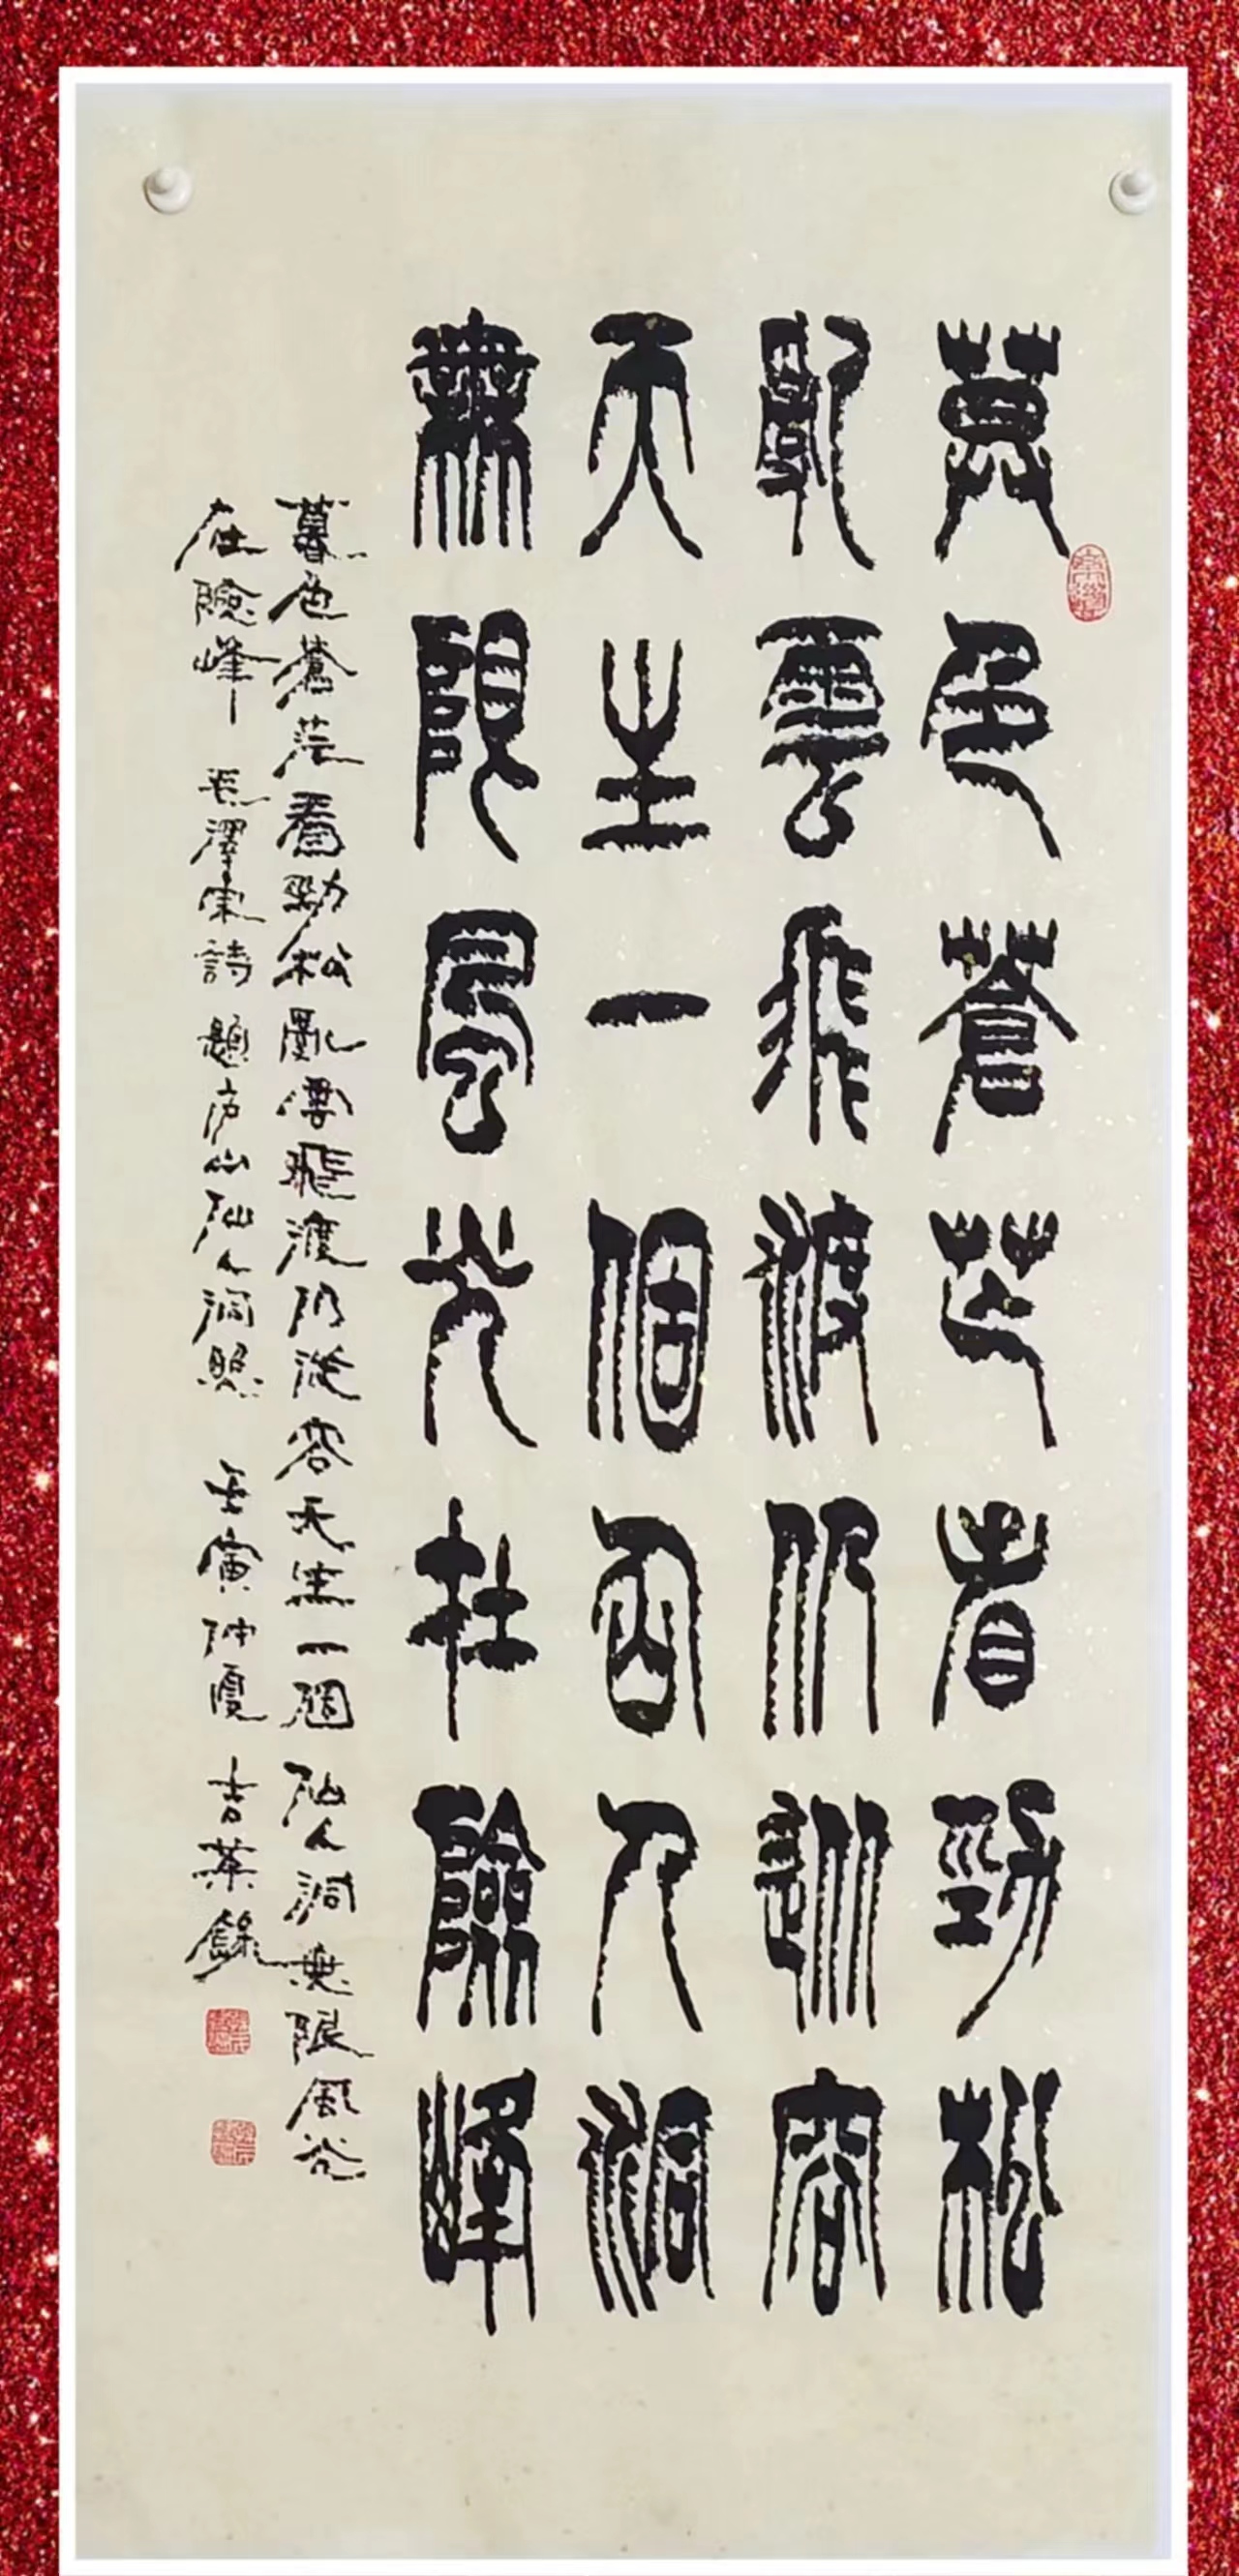 莫色蒼茫看勁松
亂雲飛渡仍從容
天生一個仙人洞
無限風光在險峰
暮色蒼茫看勁松亂雲飛渡仍從容天生一個仙人洞無限風光
在險峰 毛澤東詩 題庐山仙人洞照 壬寅仲夏 吉葉錄